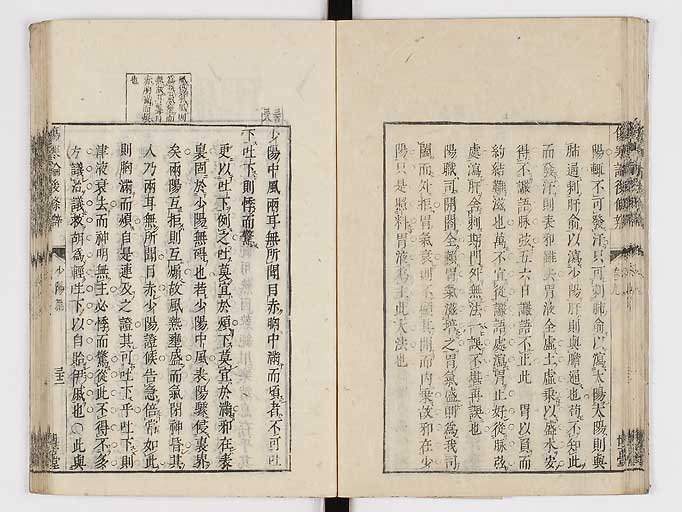 陽輒不可發汗只可刺肺俞以瀉太陽太陽則與
肺通刺肝俞以瀉少陽肝則與膽通也苟不知此
而發汗則表邪雖去胃液全虛土虛乘以盛木安
得不譫語脉弦五六日譫語不止此 胃以
約結難滋也萬不宜從譫語處瀉胃止好從脉弦
處瀉肝舍刺期門外無法一誤不堪再誤也
陽職司開闔全藉胃氣滋培之胃氣盛則為我司
闔而外拒胃氣衰則不順其開而內乘故邪在少
陽只是照料胃液為主此大法也
少陽中風兩耳無所聞目赤胸中滿而煩者不可吐
下吐下則悸而驚
更以吐下例之吐莫宜於煩下莫宜於滿邪在表
裏固於少陽無碍也若少陽中風表陽驟侵裏界
矣兩陽互拒則互煽故風熱壅盛而氣閉神昏其
人乃兩耳無所聞目赤少陽證候告急倍常如此
則胸滿而煩自是連及之證其可吐下乎吐下則
津液衰去而神明無主必悸而驚從此不得不多
方議治議救胡為輕吐下以自貽伊戚也○此與
傷寒論後條辨
少陽篇